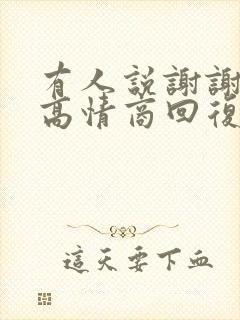 有人說謝謝
高情商回復
這天要下血